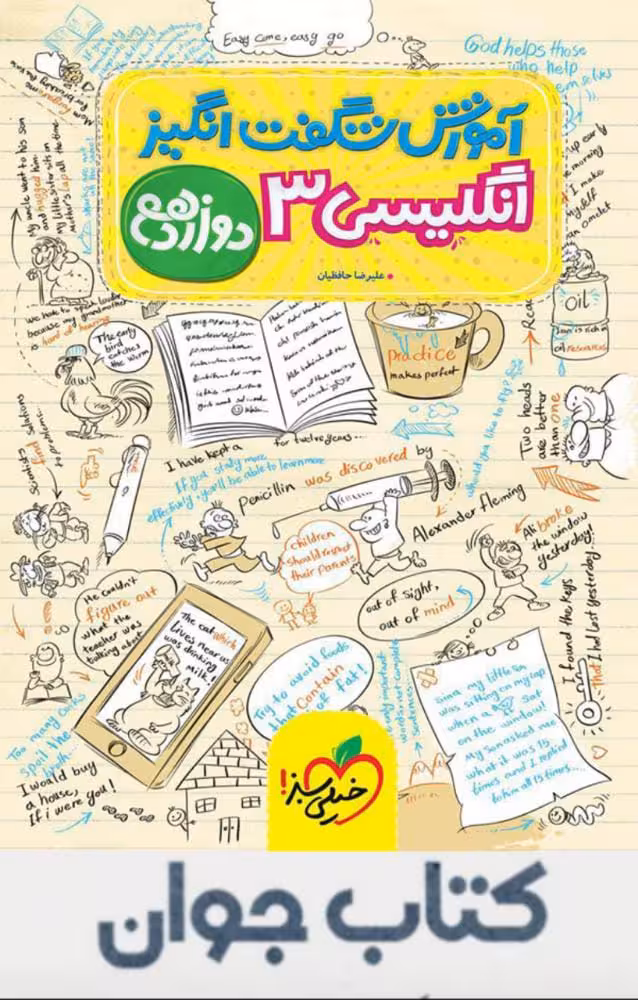 Easy come, easy go
God helps those
who help
آموزش شگفت انگیز
انگلیسی ۳
دوازدهم
علیرضا حافظیان
My uncle went to his son
and hugged him.
my little sister sits in
mother's lap all the time
we have to speak louder
because my grandmother
is hard of hearing
The early
bird
catches
the worm
practice
makes perfect
Oil
Two heads
are better
than one
Scientists find solutions
to problems.
I have kept a
for twelve years...
If you study more
effectively, you'll be able to learn more
Penicillin was discovered by
Alexander fleming
children
should respect
their parents
Ali broke
the window
yesterday!
out of sight,
out of mind
I found the keys
that I had lost yesterday...
He couldn't
figure out
what the
teacher was
talking about
The cat which
lives near us
was drinking
milk!
Try to avoid foods
that contain
of fat!
Sina my little son
was sitting on my lap
when a
sat
on the window!
My son asked me
what it was 15
times and I replied
to him all 15 times...
Too many cooks
spoil the
I would buy
a house,
If i were you!
خیلی سبز!
کتاب جوان